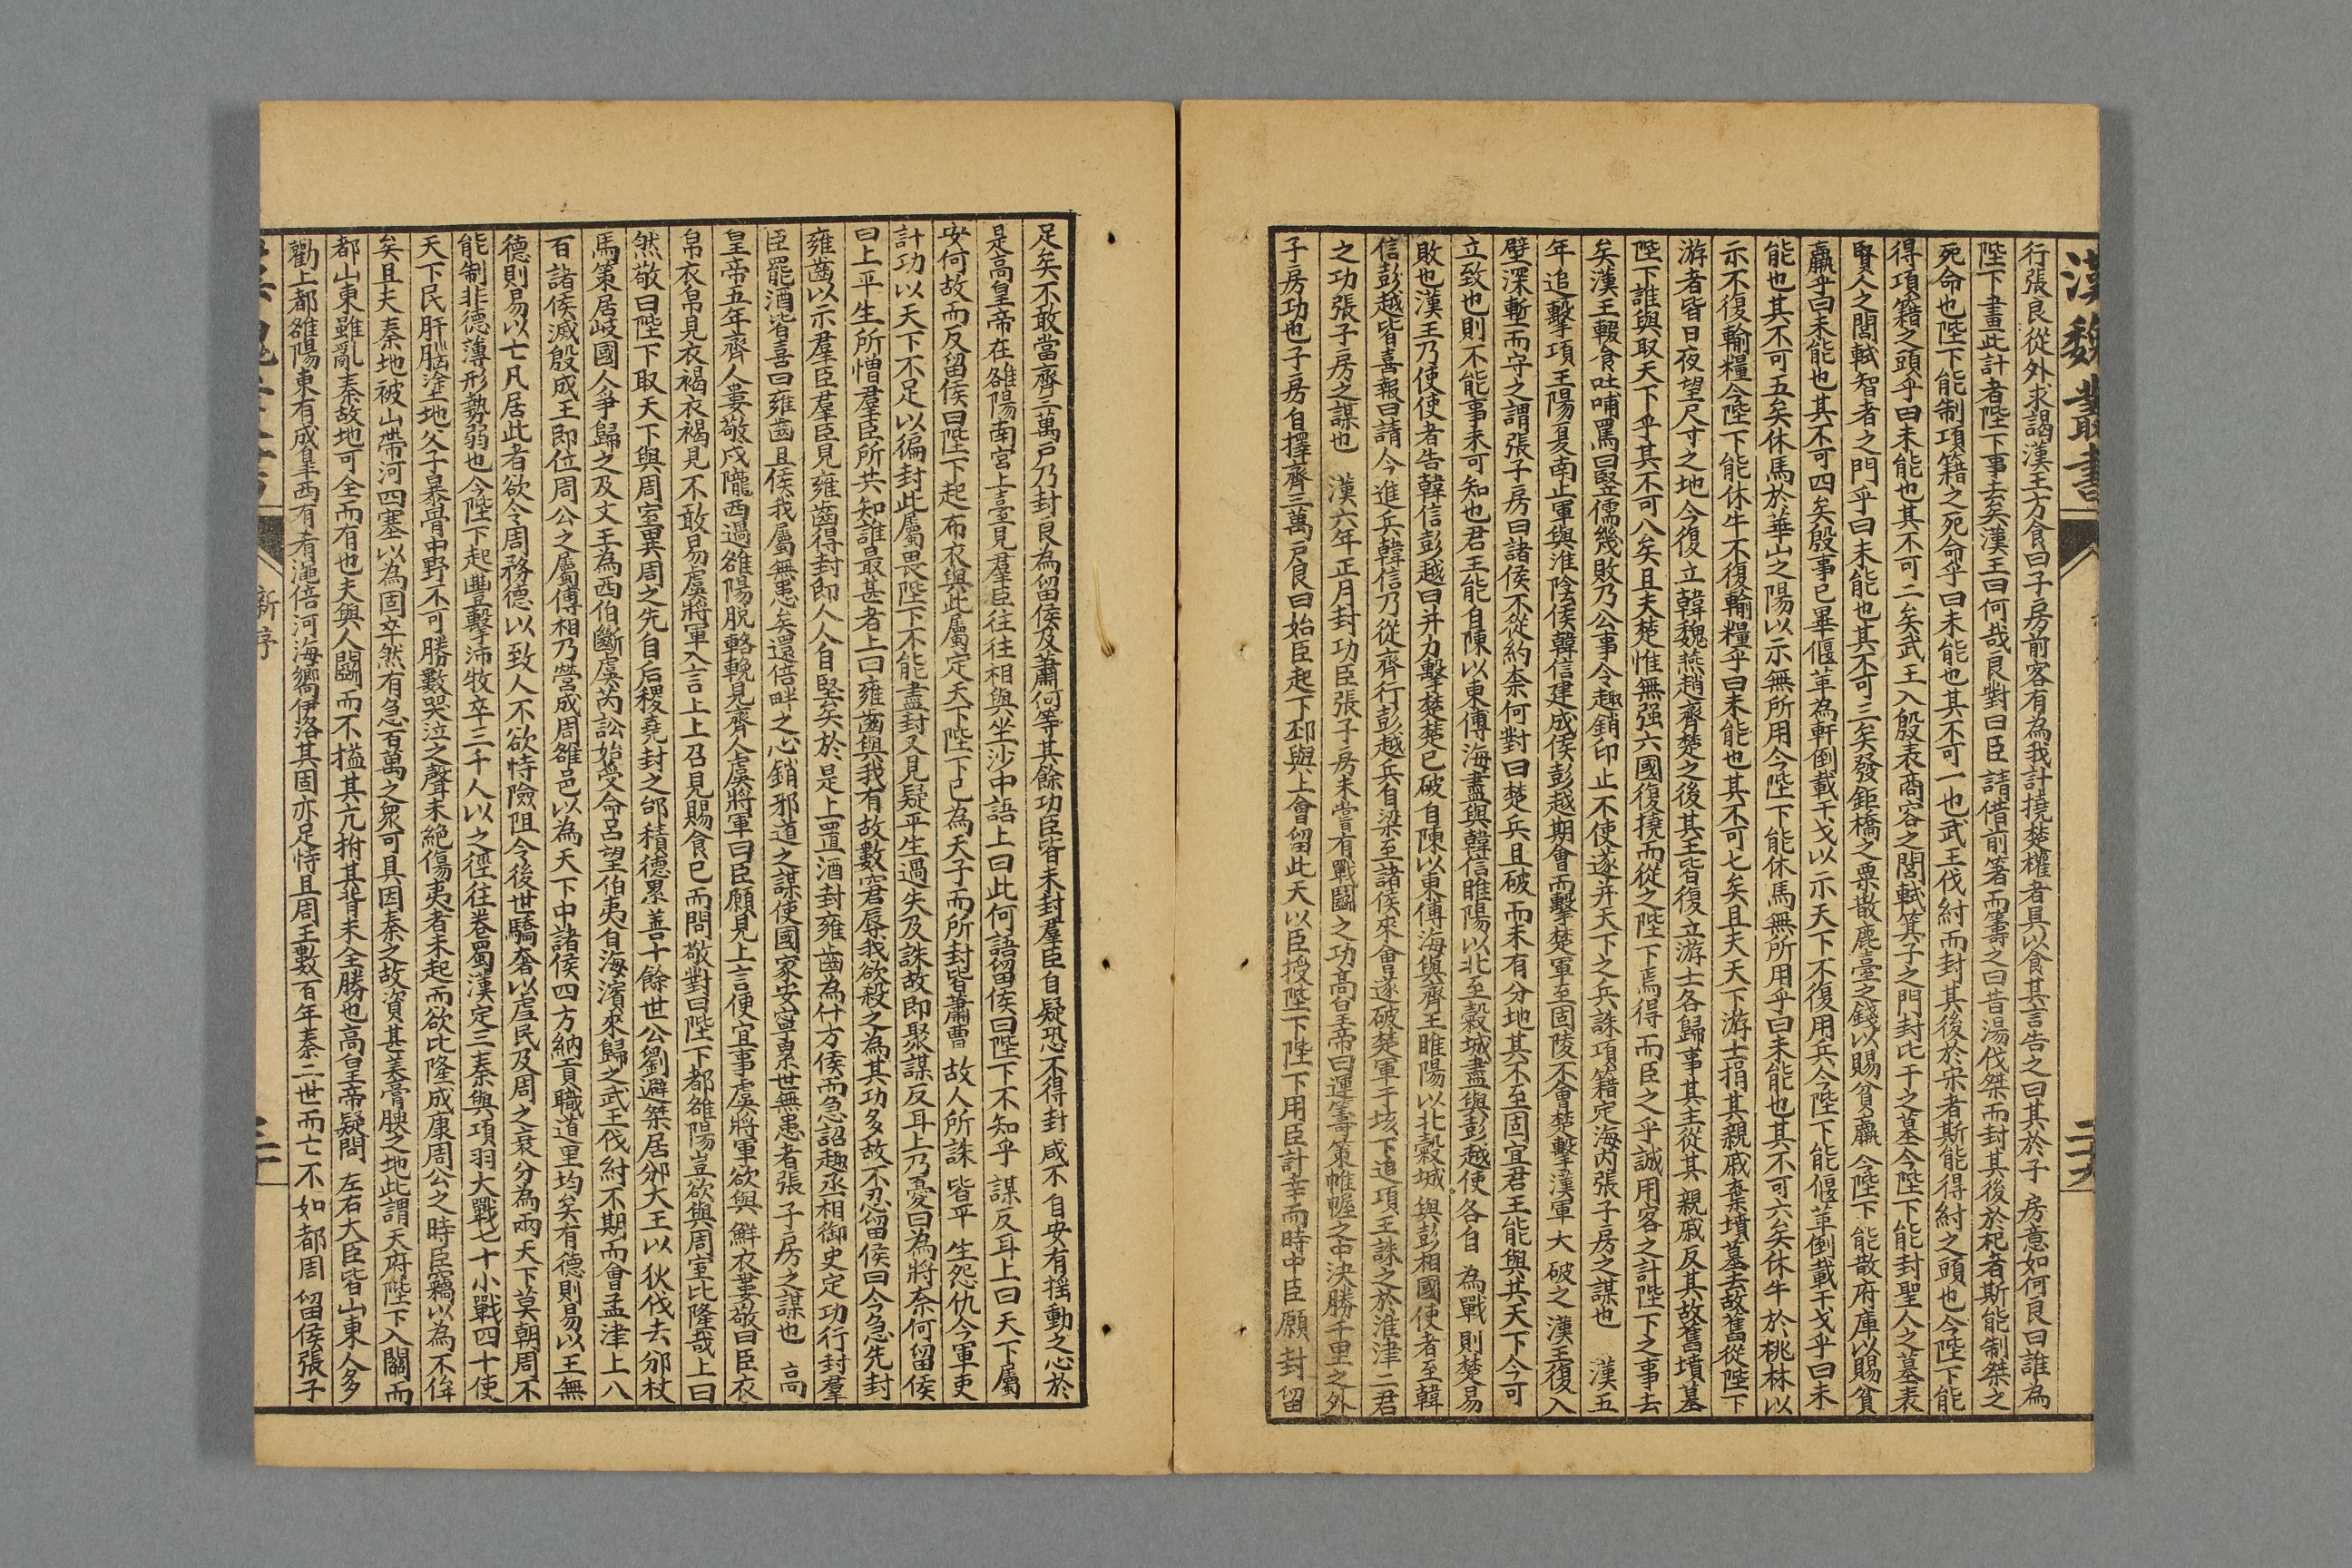 漢魏叢書
二十九
行張良從外求謁漢王方食曰子房前客有為我計撓楚權者具以食其言告之曰其於子房意如何良曰誰為
陛下畫此計者陛下事去矣漢王曰何哉良對曰臣請借前箸而籌之曰昔湯伐桀而封其後於杞者斯能制桀之
死命也陛下能制項籍之死命乎曰未能也其不可一也武王伐紂而封其後於宋者斯能得紂之頭也今陛下能
得項籍之頭乎曰未能也其不可二矣武王入殷表商容之閭軾箕子之門封比干之墓今陛下能封聖人之墓表
賢人之閭軾智者之門乎曰未能也其不可三矣發鉅橋之粟散鹿臺之錢以賜貧羸今陛下能散府庫以賜貧
羸乎曰未能也其不可四矣殷事已畢偃革為軒倒載干戈以示天下不復用兵今陛下能偃革倒載干戈乎曰未
能也其不可五矣休馬於華山之陽以示無所用今陛下能休馬無所用乎曰未能也其不可六矣休牛於桃林以
示不復輸糧今陛下能休牛不復輸糧乎曰未能也其不可七矣且夫天下游士捐其親戚棄墳墓去故舊從陛下
游者皆日夜望尺寸之地今復立韓魏燕趙齊楚之後其王皆復立游士各歸事其主從其親戚反其故舊墳墓
陛下誰與取天下乎其不可八矣且夫楚惟無强六國復撓而從之陛下焉得而臣之乎誠用客之計陛下之事去
矣漢王輟食吐哺罵曰竪儒幾敗乃公事令趣銷印止不使遂并天下之兵誅項籍定海內張子房之謀也　漢五
年追擊項王陽夏南止軍與淮陰侯韓信建成侯彭越期會而擊楚軍至固陵不會楚擊漢軍大破之漢王復入
壁深塹而守之謂張子房曰諸侯不從約柰何對曰楚兵且破而未有分地其不至固宜君王能與共天下今可
立致也則不能事未可知也君王能自陳以東傅海盡與韓信睢陽以北至穀城盡與彭越使各自為戰則楚易
敗也漢王乃使使者告韓信彭越曰并力擊楚楚已破自陳以東傅海與齊王睢陽以北穀城與彭相國使者至韓
信彭越皆喜報曰請今進兵韓信乃從齊行彭越兵自梁至諸侯來會遂破楚軍于垓下追項王誅之於淮津二君
之功張子房之謀也　漢六年正月封功臣張子房未嘗有戰鬭之功高皇帝曰運籌策帷幄之中決勝千里之外
子房功也子房自擇齊三萬戶良曰始臣起下邳與上會留此天以臣授陛下陛下用臣計幸而時中臣願封留
足矣不敢當齊三萬戶乃封良為留侯及蕭何等其餘功臣皆未封羣臣自疑恐不得封咸不自安有搖動之心於
是高皇帝在雒陽南宮上臺見羣臣往往相與坐沙中語上曰此何語留侯曰陛下不知乎謀反耳上曰天下屬
安何故而反留侯曰陛下起布衣與此屬定天下陛下已為天子而所封皆蕭曹故人所誅皆平生怨仇今軍吏
計功以天下不足以徧封此屬畏陛下不能盡封又見疑平生過失及誅故即聚謀反耳上乃憂曰為將奈何留侯
曰上平生所憎羣臣所共知誰最甚者上曰雍齒與我有故數窘辱我欲殺之為其功多故不忍留侯曰今急先封
雍齒以示羣臣羣臣見雍齒得封即人人自堅矣於是上置酒封雍齒為什方侯而急詔趣丞相御史定功行封羣
臣罷酒皆喜曰雍齒且侯我屬無患矣還倍畔之心銷邪道之謀使國家安寧累世無患者張子房之謀也　高
皇帝五年齊人婁敬戍隴西過雒陽脫輅輓見齊人虞將軍曰臣願見上言便宜事虞將軍欲與鮮衣婁敬曰臣衣
帛衣帛見衣褐衣褐見不敢易虞將軍入言上上召見賜食已而問敬對曰陛下都雒陽豈欲與周室比隆哉上曰
然敬曰陛下取天下與周室異周之先自后稷堯封之邰積德累善十餘世公劉避桀居邠大王以狄伐去邠杖
馬策居岐國人爭歸之及文王為西伯斷虞芮訟始受命呂望伯夷自海濱來歸之武王伐紂不期而會孟津上八
百諸侯滅殷成王即位周公之屬傅相乃營成周雒邑以為天下中諸侯四方納貢職道里均矣有德則易以王無
德則易以亡凡居此者欲令周務德以致人不欲恃險阻令後世驕奢以虐民及周之衰分為兩天下莫朝周不
能制非德薄形勢弱也今陛下起豐擊沛收卒三千人以之徑往卷蜀漢定三秦與項羽大戰七十小戰四十使
天下民肝腦塗地父子暴骨中野不可勝數哭泣之聲未絕傷夷者未起而欲比隆成康周公之時臣竊以為不侔
矣且夫秦地被山帶河四塞以為固卒然有急百萬之衆可具因秦之故資甚美膏腴之地此謂天府陛下入關而
都山東雖亂秦故地可全而有也夫與人鬭而不搤其亢拊其背未全勝也高皇帝疑問左右大臣皆山東人多
勸上都雒陽東有成皐西有肴澠倍河海嚮伊洛其固亦足恃且周王數百年秦二世而亡不如都周留侯張子
新序
三十